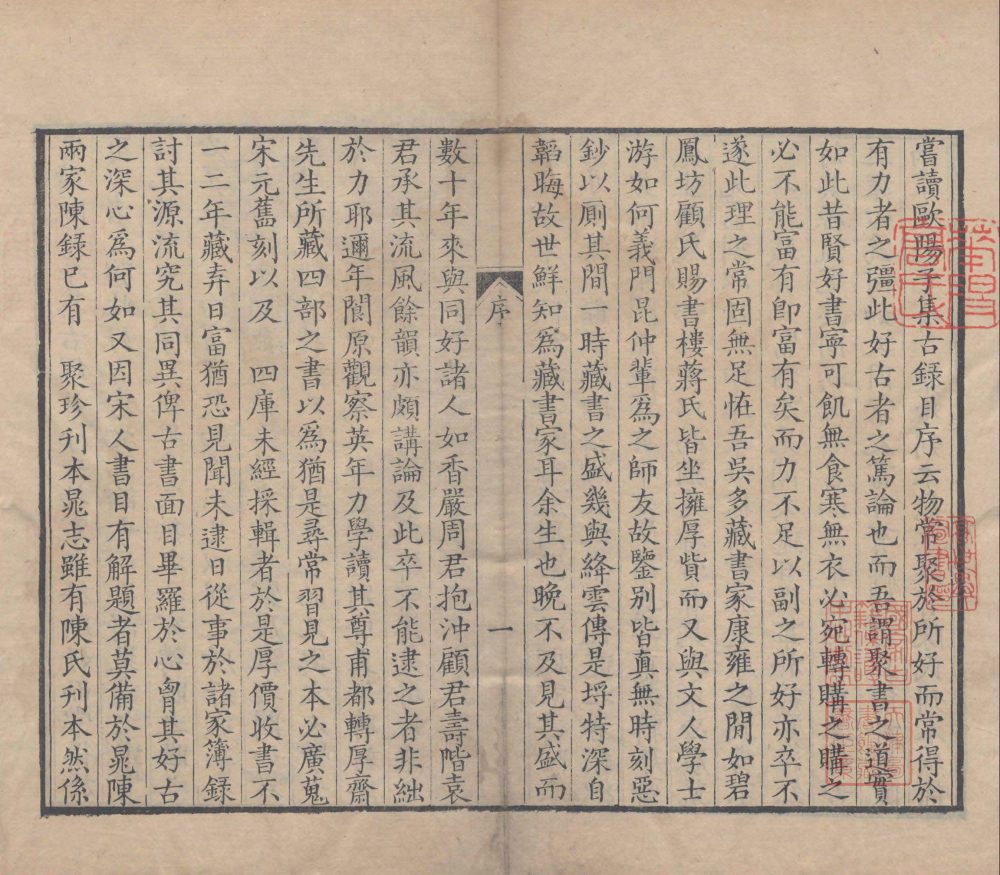 嘗讀歐陽子集古録目序云物常聚於所好而常得於
有力者之彊此好古者之篤論也而吾謂聚書之道實
如此昔賢好書寧可飢無食寒無衣必宛轉購之購之
必不能富有卽富有矣而力不足以副之所好亦卒不
遂此理之常固無足恠吾吳多藏書家康雍之閒如碧
鳳坊顧氏賜書樓蔣氏皆坐擁厚貲而又與文人學士
游如何義門昆仲輩爲之師友故鑒别皆真無時刻惡
鈔以厠其間一時藏書之盛幾與絳雲傳是埒特深自
韜晦故世鮮知爲藏書家耳余生也晚不及見其盛而
序
一
數十年來與同好諸人如香嚴周君抱沖顧君壽階袁
君承其流風餘韻亦頗講論及此卒不能逮之者非絀
於力耶邇年閬原觀察英年力學讀其尊甫都轉厚齋
先生所藏四部之書以爲猶是尋常習見之本必廣蒐
宋元舊刻以及　四庫未經採輯者於是厚價收書不
一二年藏弆日富猶恐見聞未逮日從事於諸家簿録
討其源流究其同異俾古書面目畢羅於心胷其好古
之深心爲何如又因宋人書目有解題者莫備於晁陳
兩家陳録已有　聚珍刊本晁志雖有陳氏刊本然係